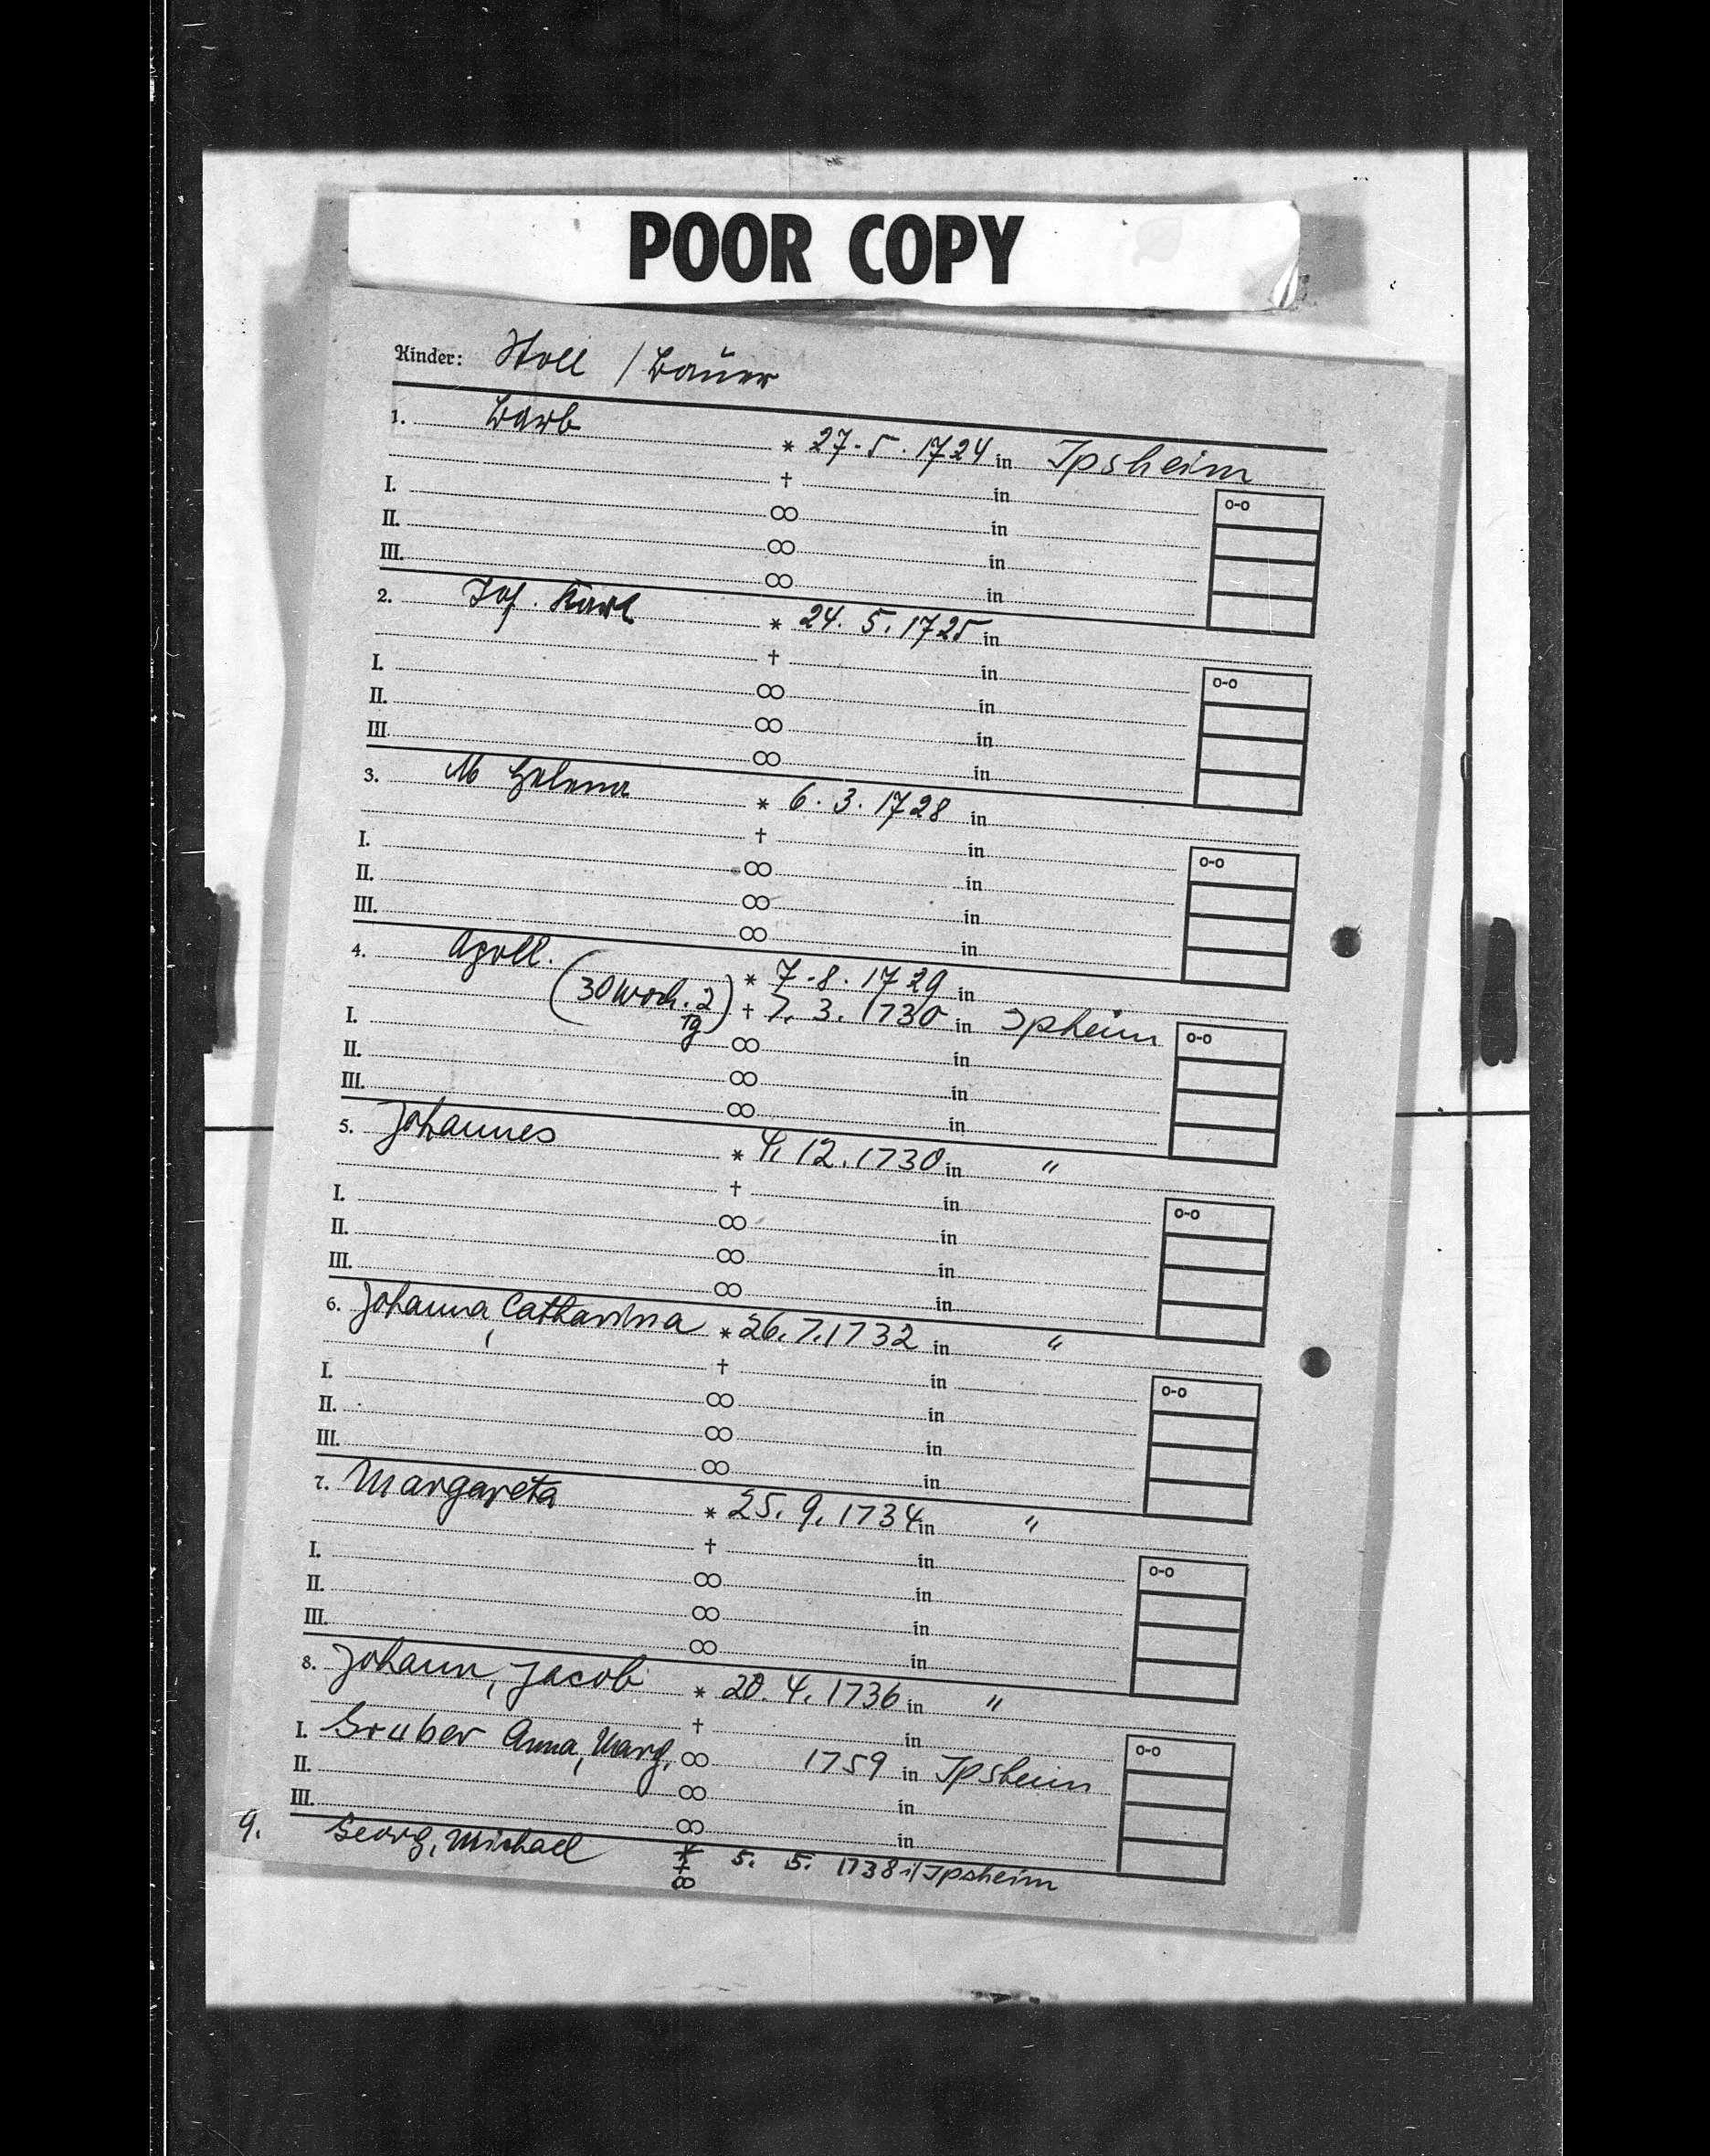 POOR COPY
Kinder: Stoll / Bauer
1. Barb * 27.5.1724 in Ipsheim
† in
I. ∞ in o-o
II. ∞ in
III. ∞ in
2. Joh. Karl * 24. 5. 1725 in
† in
I. ∞ in o-o
II. ∞ in
III. ∞ in
3. M Helena * 6. 3. 1728 in
† in
I. ∞ in o-o
II. ∞ in
III. ∞ in
4. Apoll. * 7.8.1729 in
(30 Woch. 2 Tg) † 7. 3. 1730 in Ipsheim
I. ∞ in o-o
II. ∞ in
III. ∞ in
5. Johannes * 4. 12. 1730 in "
† in
I. ∞ in o-o
II. ∞ in
III. ∞ in
6. Johanna, Catharina * 26. 7. 1732 in "
† in
I. ∞ in o-o
II. ∞ in
III. ∞ in
7. Margareta * 25. 9. 1734 in "
† in
I. ∞ in o-o
II. ∞ in
III. ∞ in
8. Johann, Jacob * 20. 4. 1736 in "
† in
I. Gruber Anna, Marg. ∞ 1759 in Ipsheim o-o
II. ∞ in
III. ∞ in
9. Georg, Michael * 5. 5. 1738 i/Ipsheim
†
∞